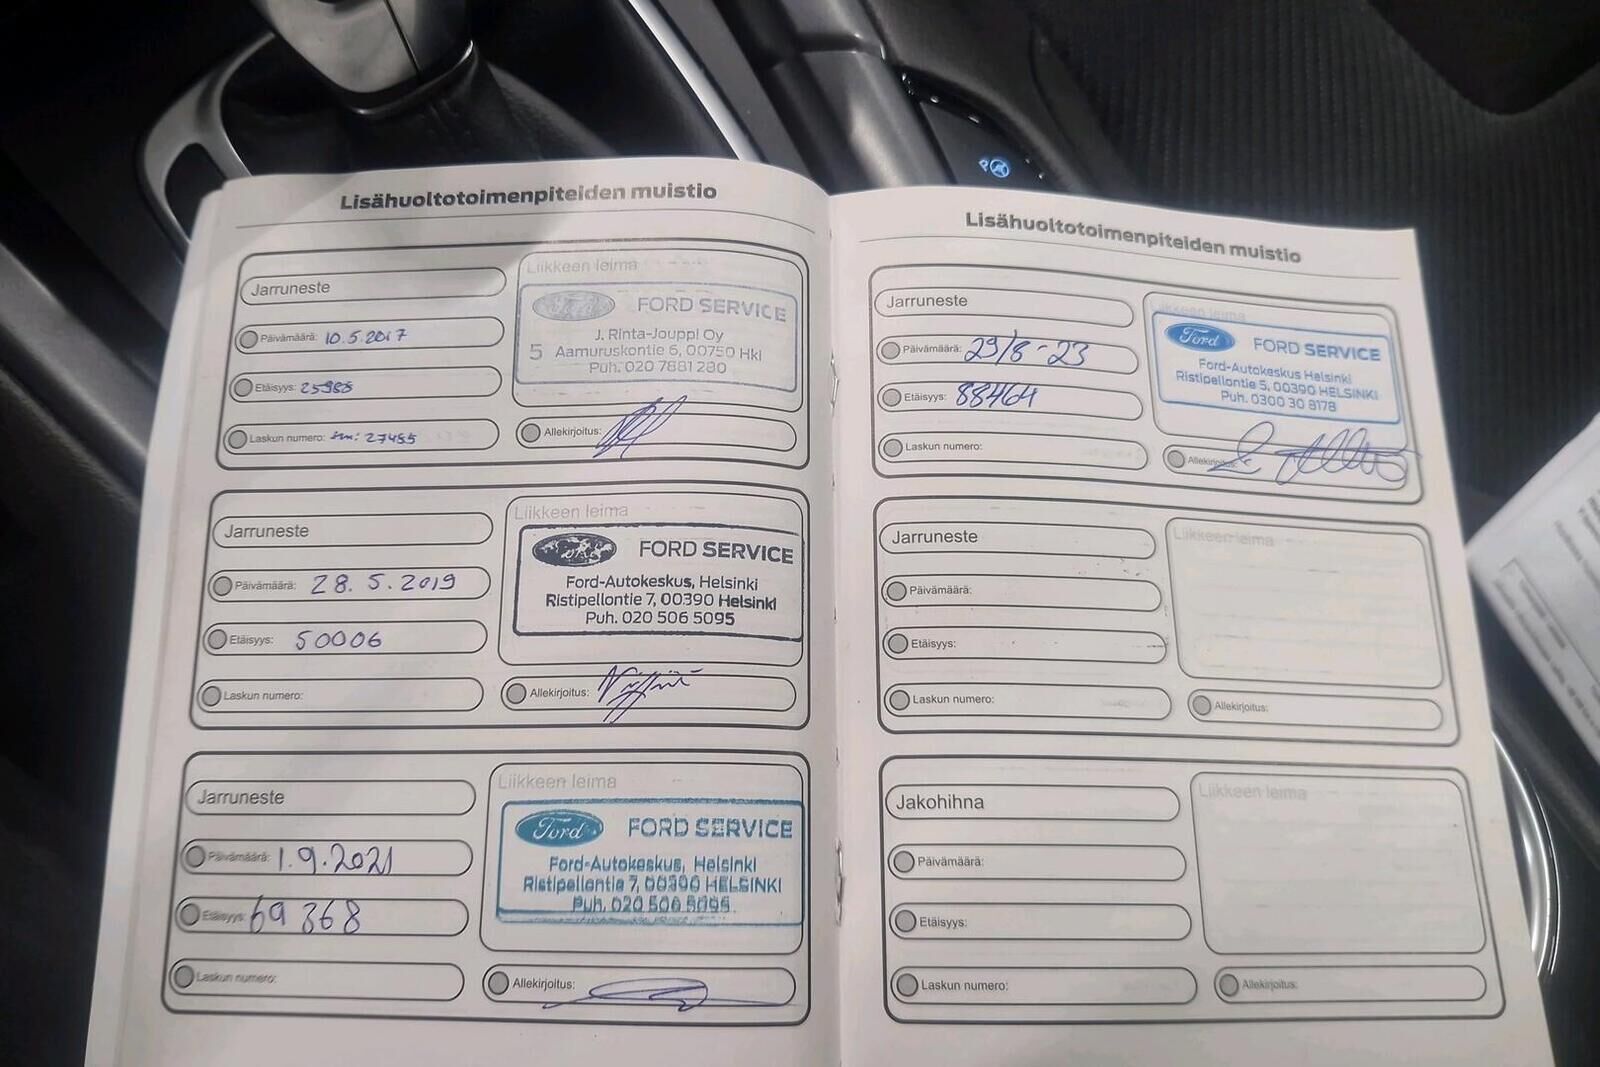 Lisähuoltotoimenpiteiden muistio
Jarruneste
Päivämäärä: 10.5.2017
Etäisyys: 25988
Laskun numero: 27485
Liikkeen leima
Ford FORD SERVICE
J. Rinta-Jouppi Oy
5 Aamuruskontie 6, 00750 Hki
Puh. 020 7881 280
Allekirjoitus:
Jarruneste
Päivämäärä: 28.5.2019
Etäisyys: 50006
Laskun numero:
Liikkeen leima
FORD SERVICE
Ford-Autokeskus, Helsinki
Ristipellontie 7, 00390 Helsinki
Puh. 020 506 5095
Allekirjoitus:
Jarruneste
Päivämäärä: 1.9.2021
Etäisyys: 69368
Laskun numero:
Liikkeen leima
Ford FORD SERVICE
Ford-Autokeskus, Helsinki
Ristipellontie 7, 00390 HELSINKI
Puh. 020 506 5095
Allekirjoitus:
Lisähuoltotoimenpiteiden muistio
Jarruneste
Päivämäärä: 29/8-23
Etäisyys: 88464
Laskun numero:
Liikkeen leima
Ford FORD SERVICE
Ford-Autokeskus Helsinki
Ristipellontie 5, 00390 HELSINKI
Puh. 0300 30 8178
Allekirjoitus:
Jarruneste
Päivämäärä:
Etäisyys:
Laskun numero:
Liikkeen leima
Allekirjoitus:
Jakohihna
Päivämäärä:
Etäisyys:
Laskun numero:
Liikkeen leima
Allekirjoitus: